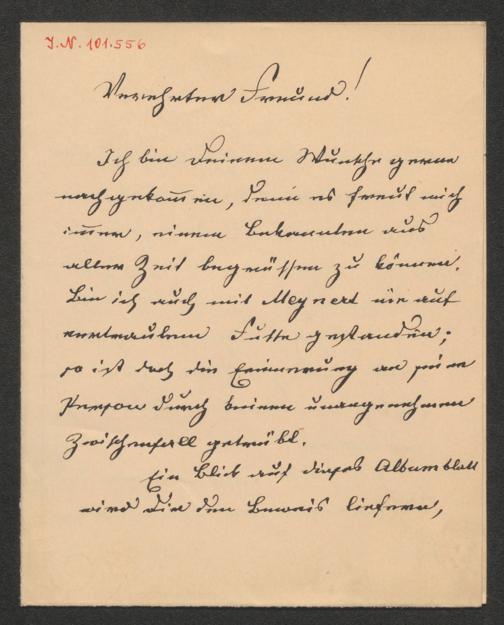 J. N. 101.556
Verehrter Freund!
Ich bin Deinem Wunsche gerne
nachgekom̄en, denn es freut mich
im̄er, einen Bekannten aus
alter Zeit begrüssen zu können.
Bin ich auch mit Meynert nie auf
vertrautem Fusse gestanden;
so ist doch die Erinnerung an seine
Person durch keinen unangenehmen
Zwischenfall getrübt.
Ein Blick auf dieses Albumblatt
wird Dir den Beweis liefern,